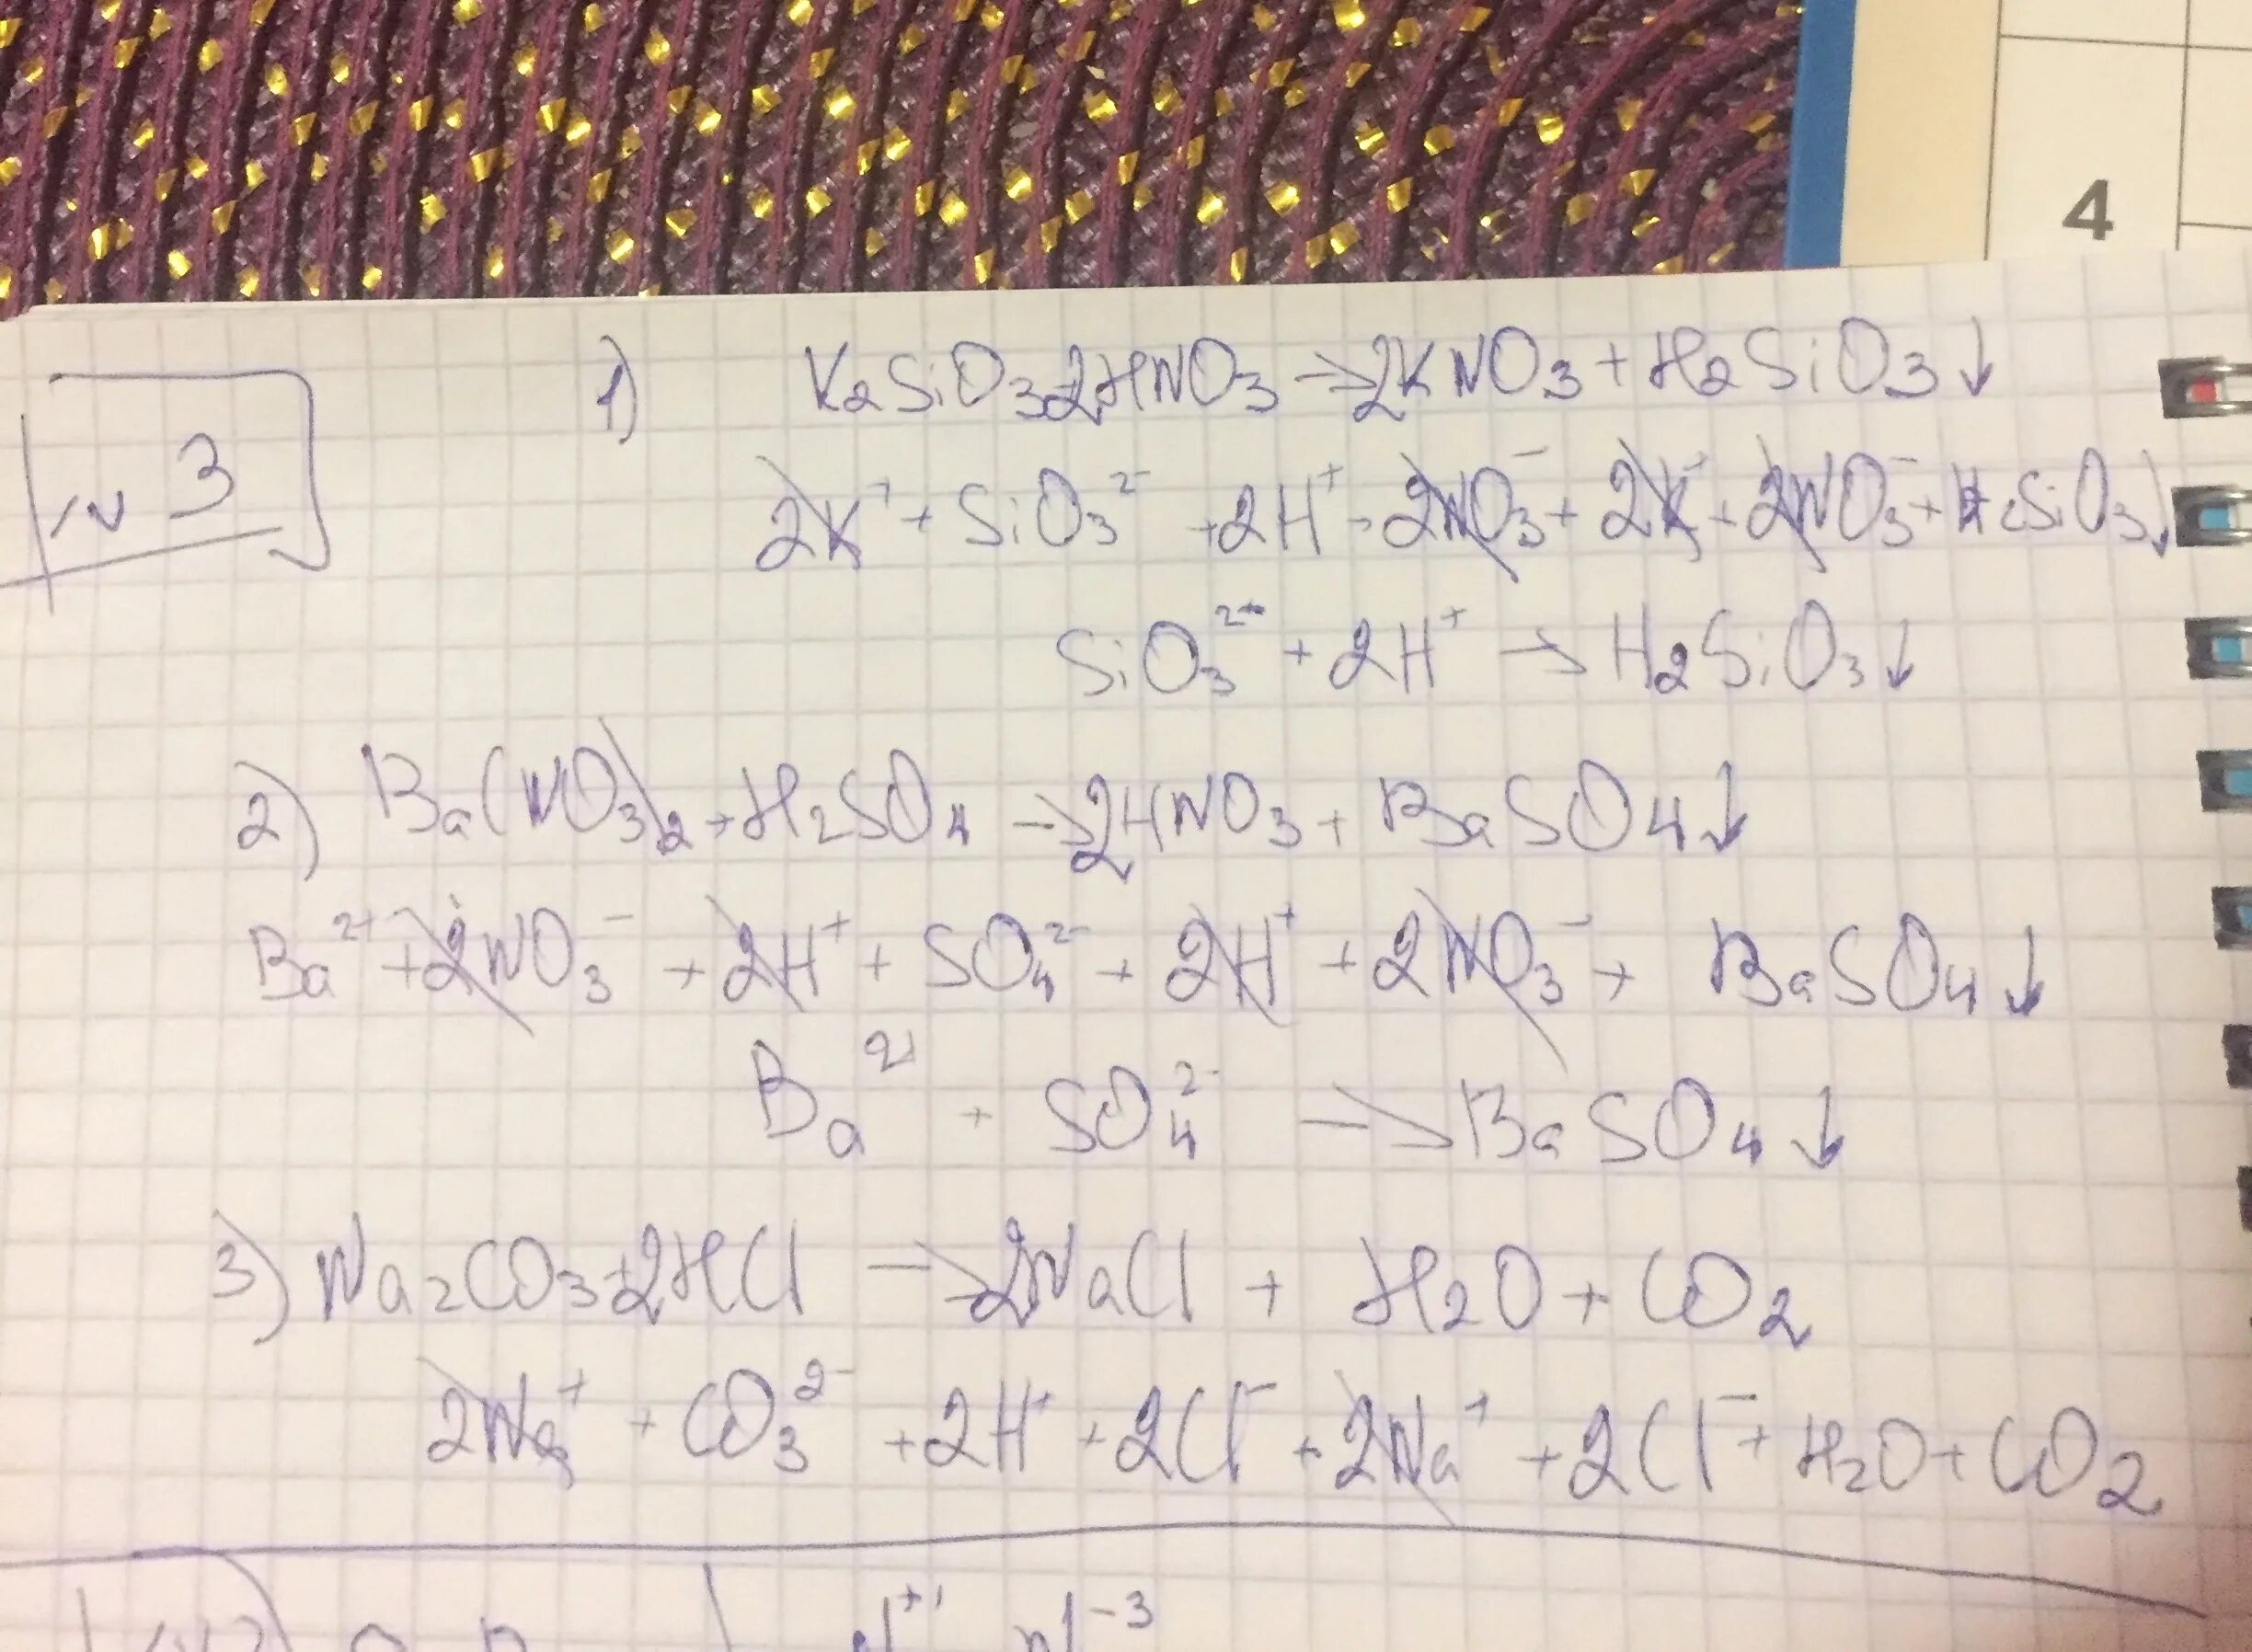 4
№ 3
1) K₂SiO₃+2HNO₃ → 2KNO₃ + H₂SiO₃↓
2K⁺ + SiO₃²⁻ + 2H⁺ + 2NO₃⁻ + 2K⁺ + 2NO₃⁻ + H₂SiO₃↓
SiO₃²⁻ + 2H⁺ → H₂SiO₃↓
2) Ba(NO₃)₂ + H₂SO₄ → 2HNO₃ + BaSO₄↓
Ba²⁺ + 2NO₃⁻ + 2H⁺ + SO₄²⁻ + 2H⁺ + 2NO₃⁻ + BaSO₄↓
Ba²⁺ + SO₄²⁻ → BaSO₄↓
3) Na₂CO₃+2HCl → 2NaCl + H₂O + CO₂
2Na⁺ + CO₃²⁻ + 2H⁺ + 2Cl⁻ + 2Na⁺ + 2Cl⁻ + H₂O + CO₂
+1 -3